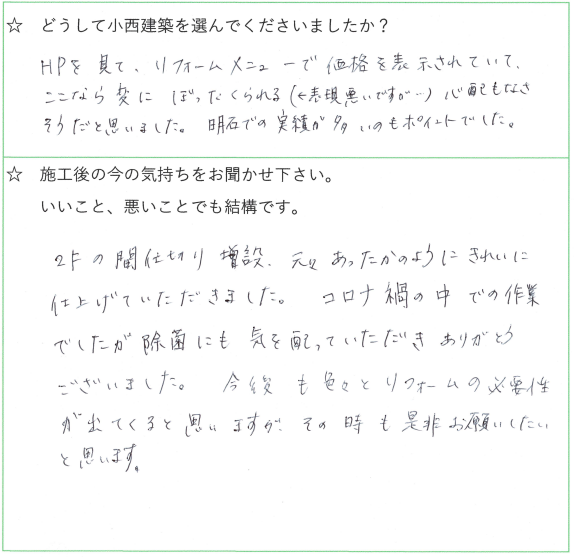 ☆ どうして小西建築を選んでくださいましたか？
HPを見て、リフォームメニューで価格を表示されていて、
ここなら変にぼったくられる(←表現悪いですが…)心配もなさ
そうだと思いました。明石での実績が多いのもポイントでした。
☆ 施工後の今の気持ちをお聞かせ下さい。
いいこと、悪いことでも結構です。
2Fの間仕切り増設、元々あったかのようにきれいに
仕上げていただきました。コロナ禍の中での作業
でしたが除菌にも気を配っていただきありがとう
ございました。今後も色々とリフォームの必要性
が出てくると思いますが、その時も是非お願いしたい
と思います。